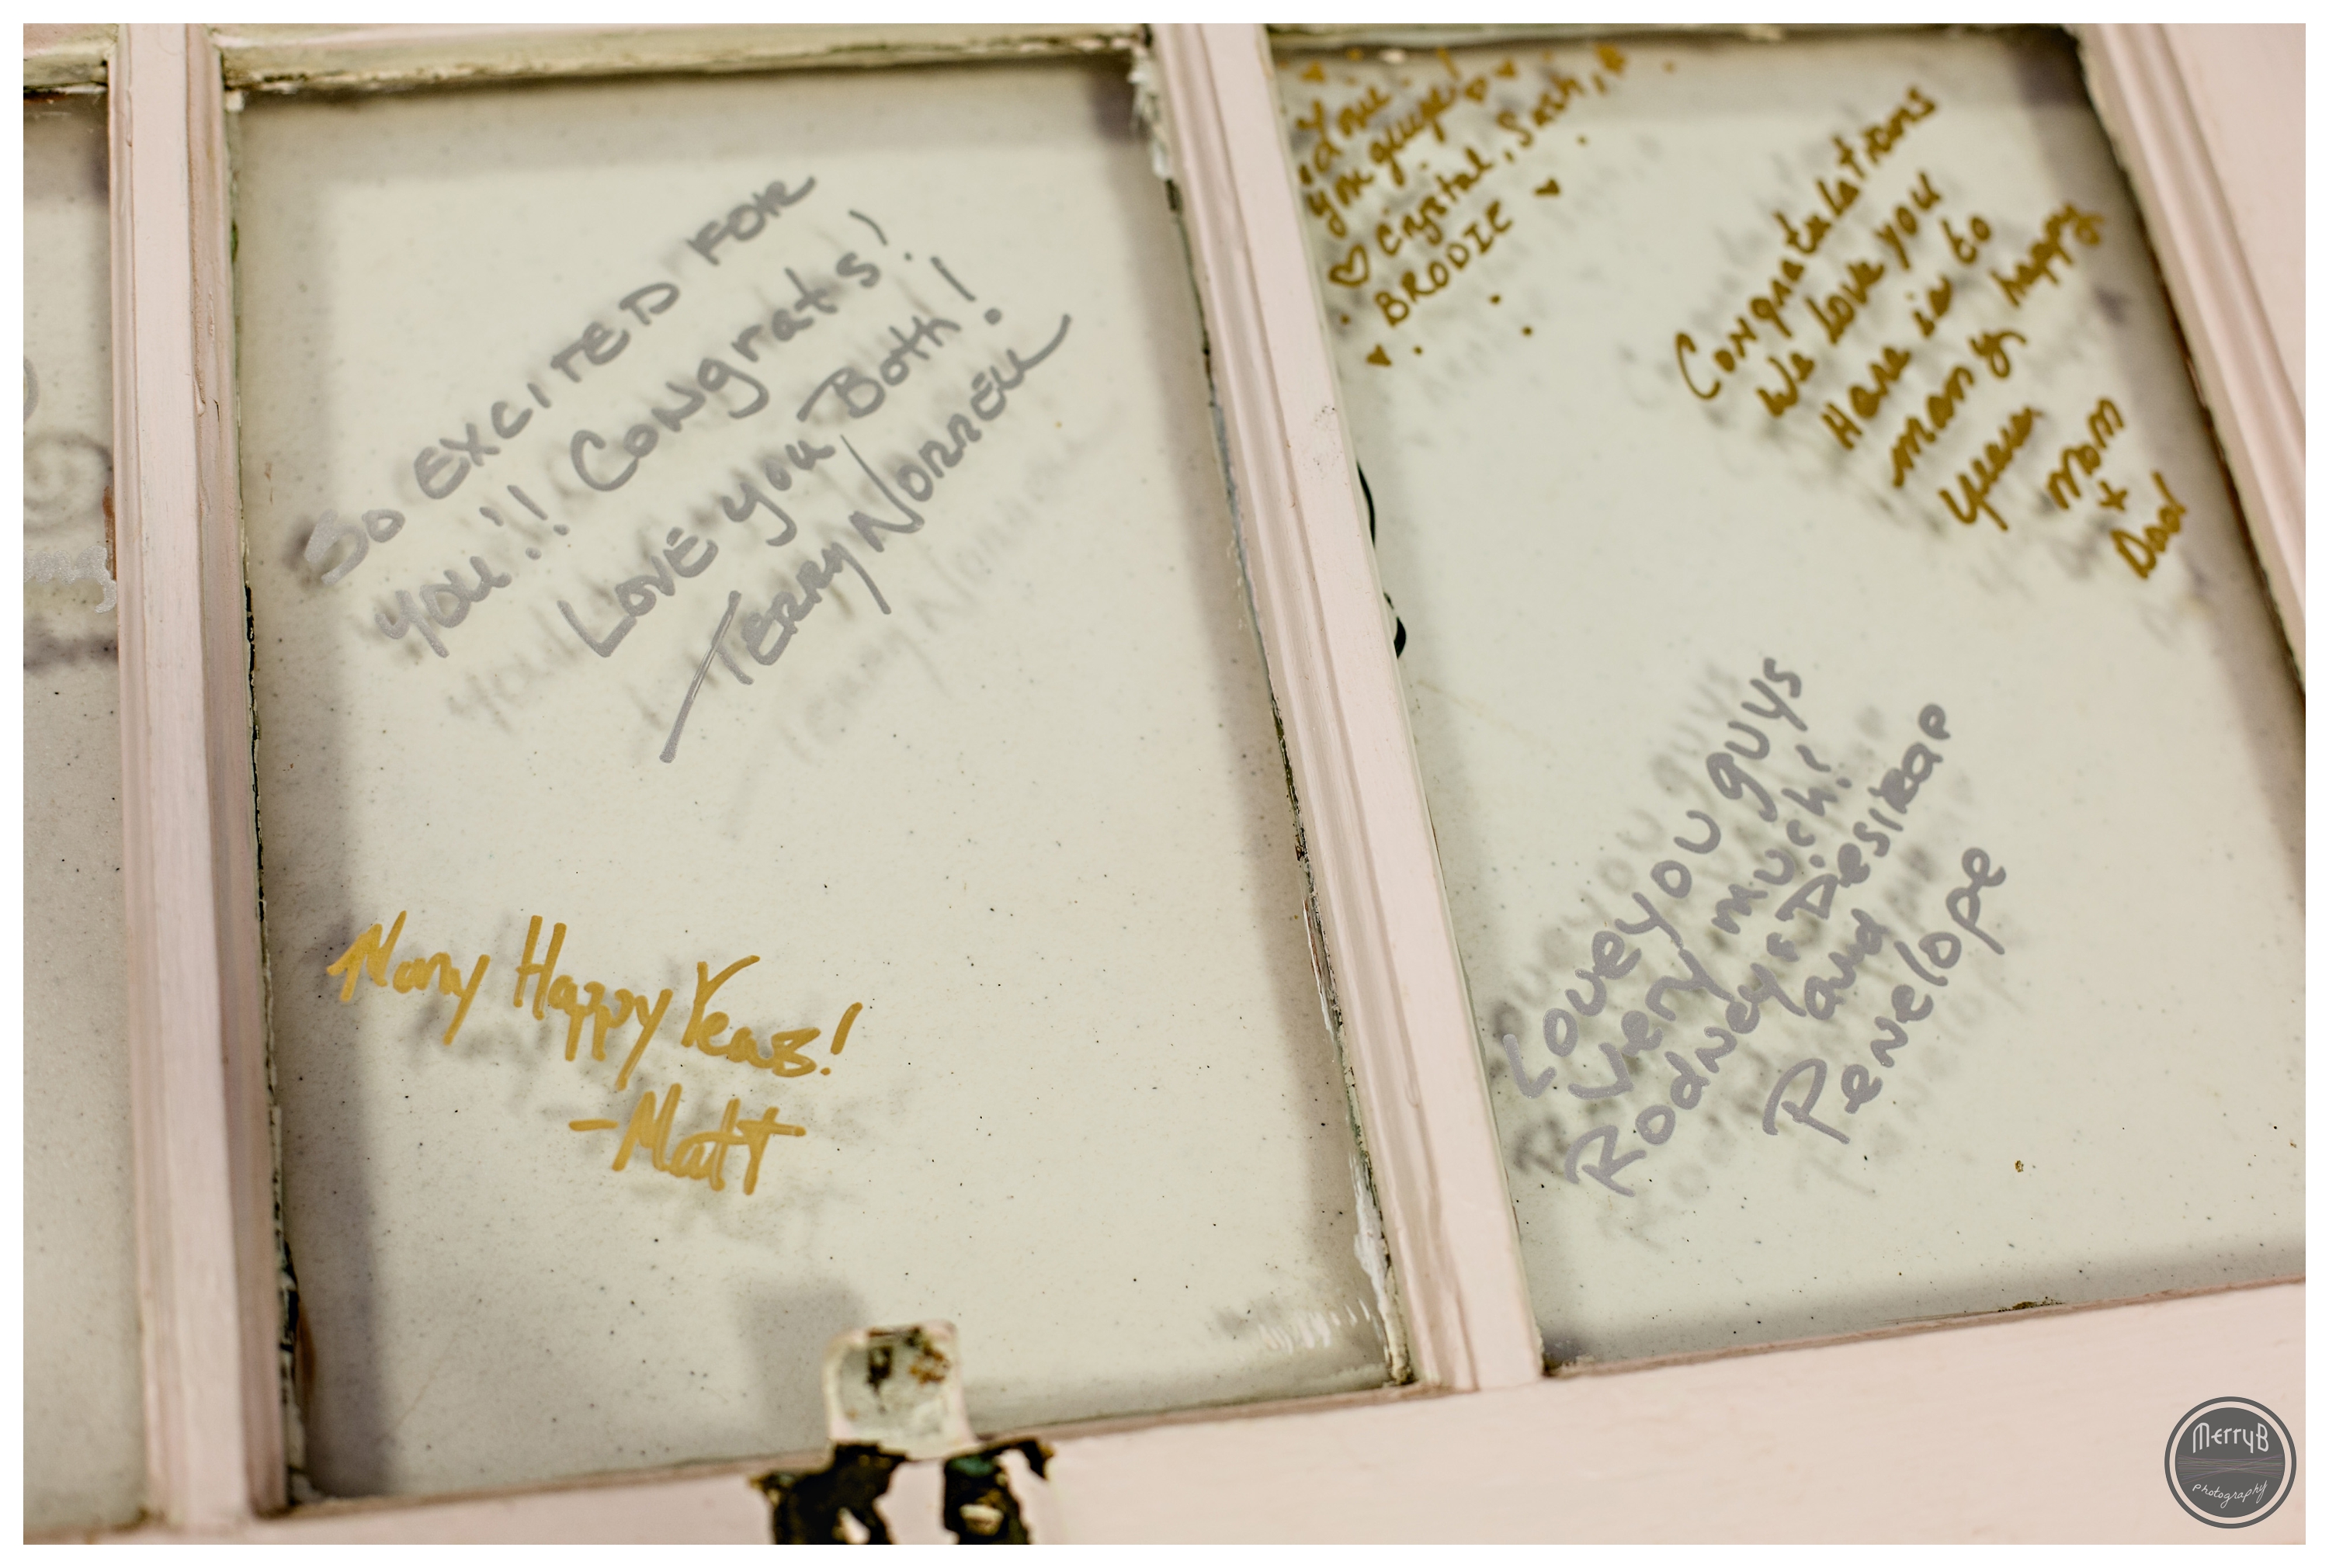 SO EXCITED FOR
you!! Congrats!
Love you Both!
TERRY NORRELL
Many Happy Years!
- Matt
Love
you guys!
♡ Crystal, Sash,
BRODIE
Congratulations
We love you
Here is to
many happy
years
Mom
+
Dad
Love you guys
very much!
Rodney & Desirae
and
Penelope
MerryB
photography